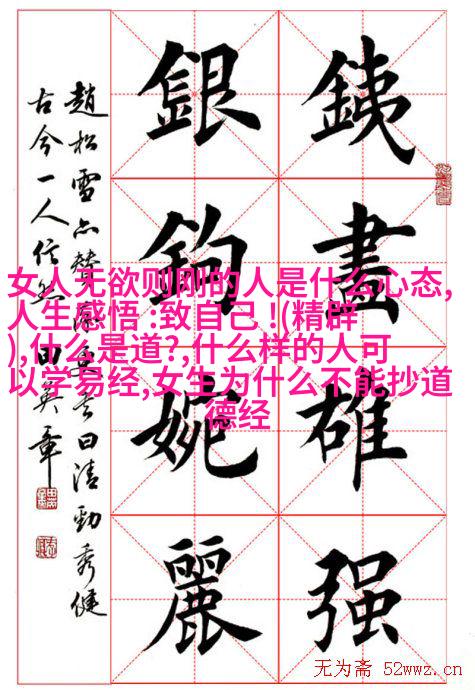 銕畫雄强
銀鉤婉麗
趙松雪亦曰清勁秀健
古今一人信然田英章
女人无欲则刚的人是什么心态,
人生感悟 :致自己 !(精辟
),什么是道?,什么样的人可
以学易经,女生为什么不能抄道
德经
无为斋 52wwz.cn